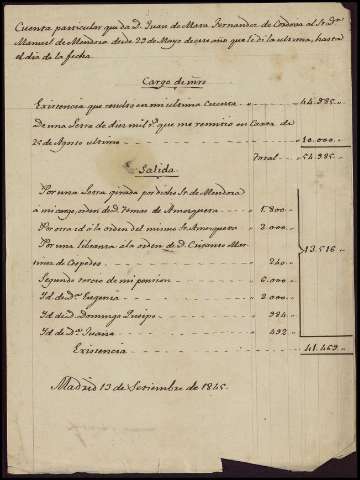 Cuenta particular que da D. Juan de Mata Fernandez de Cordova al Sr. Dn.
Manuel de Mendoza desde 29 de Mayo de este año que le di la ultima, hasta
el dia de la fecha.
Cargo de mrs
Existencia que resultó en mi ultima cuenta 44.985
De una Letra de diez mil rs. que me remitió en Carta de
25 de Agosto ultimo 10.000
Total 54.985
Salida
Por una Letra girada por dicho Sr. de Mendoza
á mi cargo, orden de D. Tomas de Amorguera 1.800
Por otra id á la orden del mismo Sr. Amorguera 2.000
Por una libranza á la orden de D. Mar-
tinez de Cespedes 240
13.516
Segundo tercio de mi pension 6.000
Id. de Da. Eugenia 2.000
Id. de D. Domingo 984
Id. de Da. Juana 492
Existencia 41.469
Madrid 13 de Setiembre de 1845.